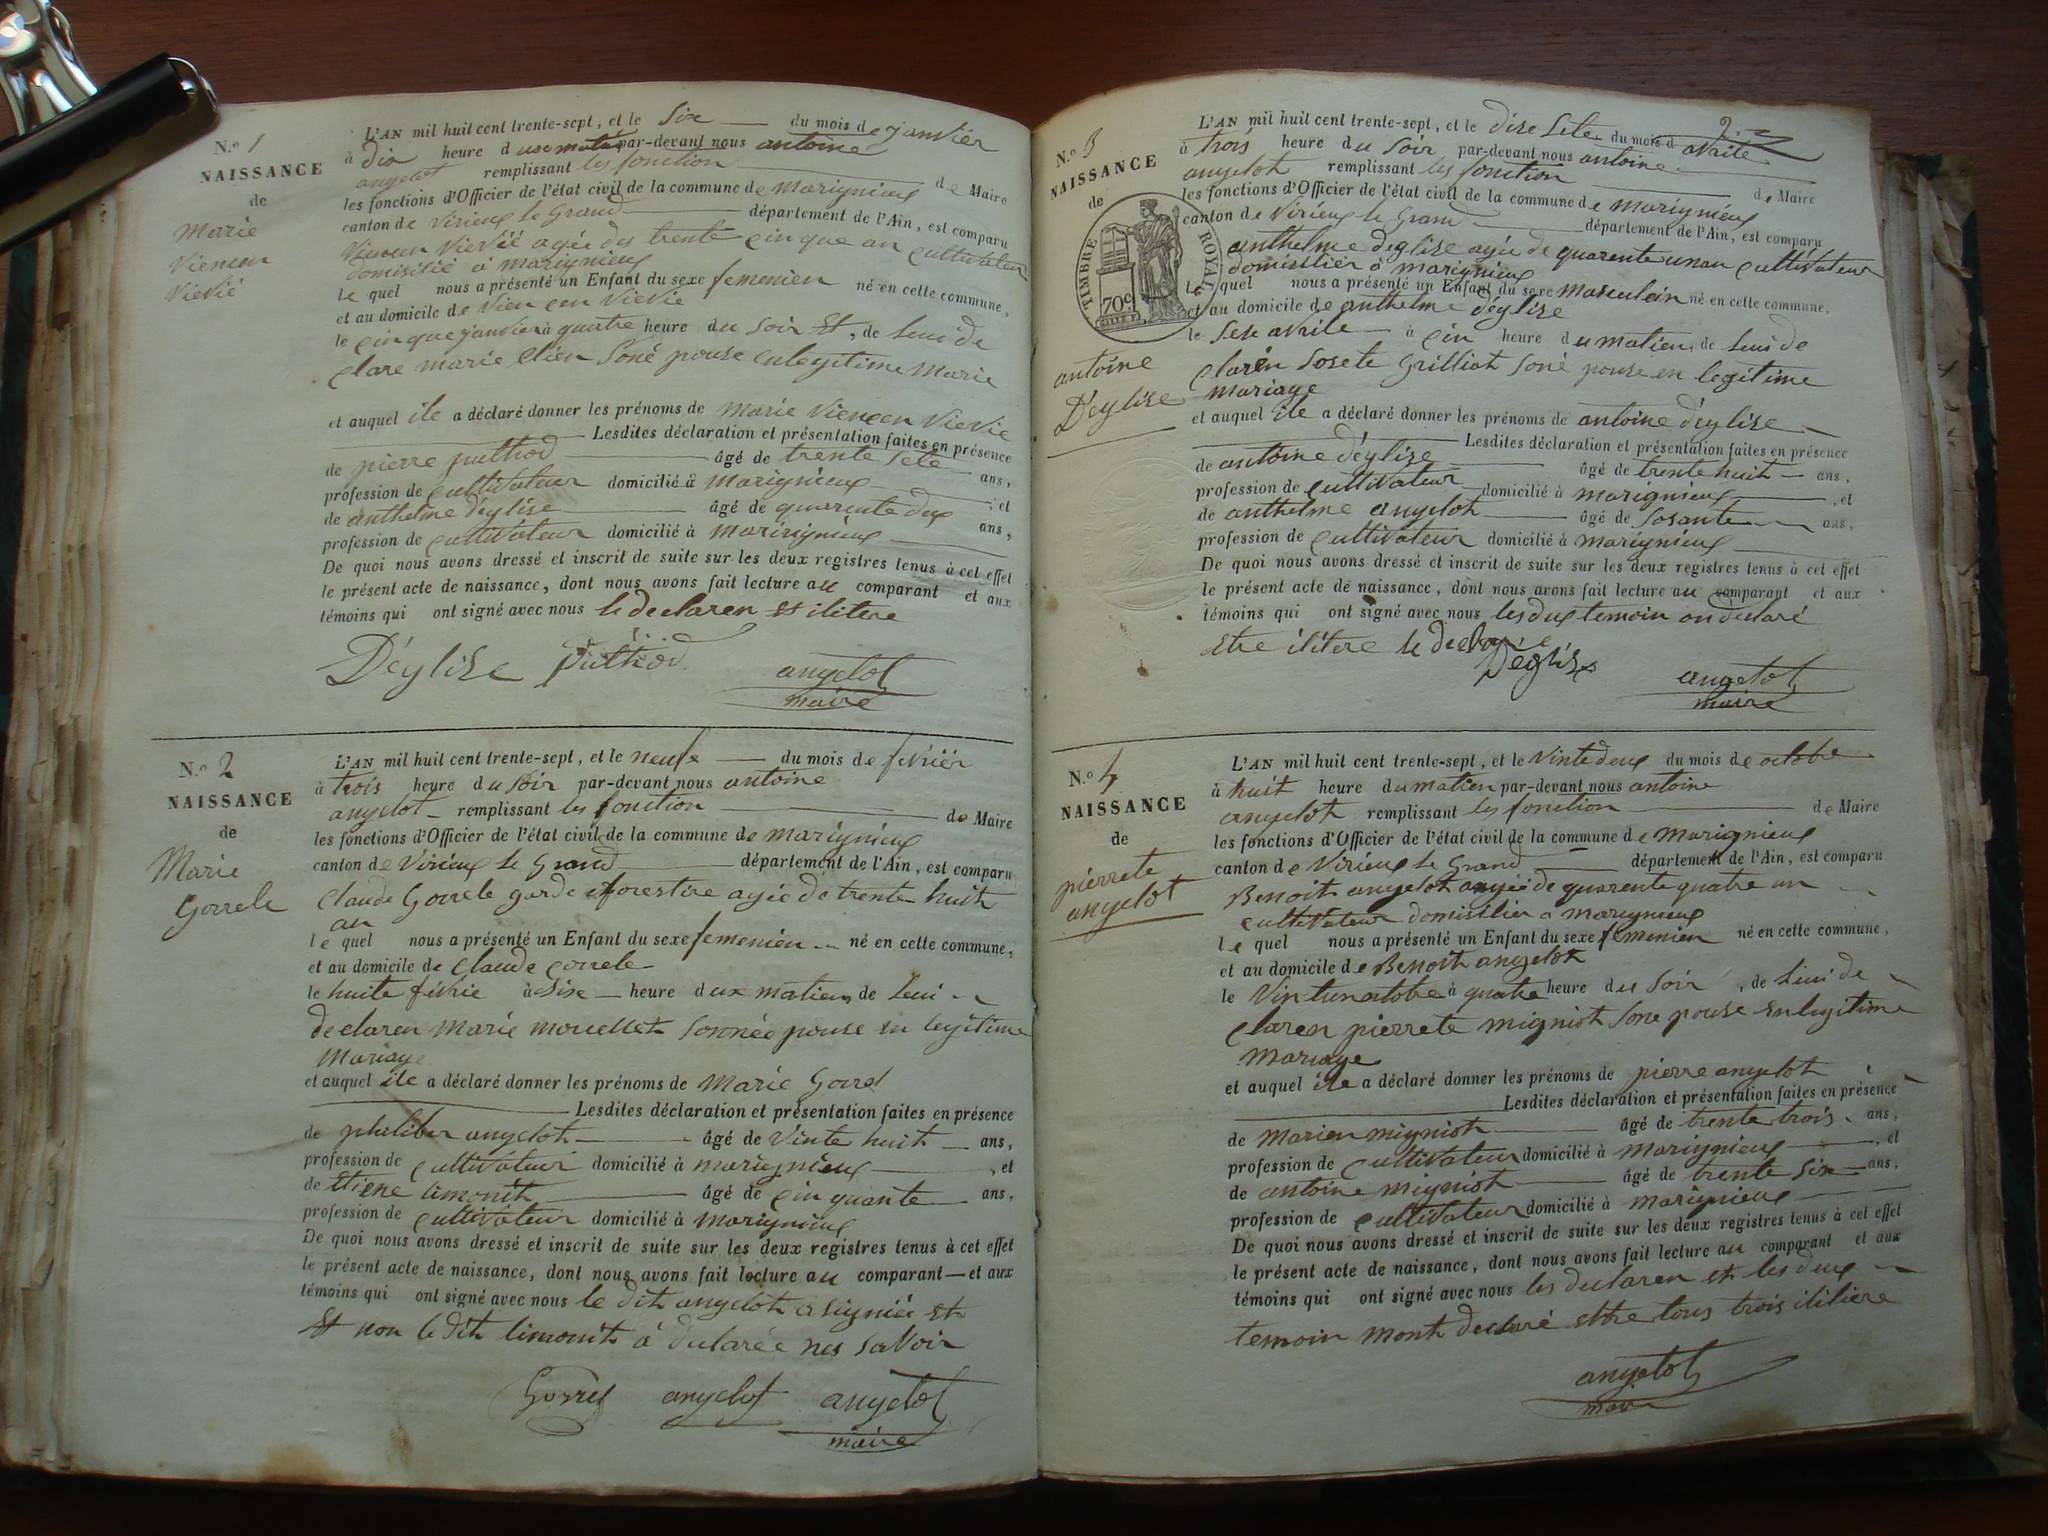 N.º 1
NAISSANCE
de
Marie
Viencen
Vievié
L'AN mil huit cent trente-sept, et le Six du mois de janvier
à dix heure d par-devant nous antoine
angelot remplissant les fonction de Maire
les fonctions d'Officier de l'état civil de la commune de marignieux
canton de Virieux le Grand département de l'Ain, est comparu
Viencen Vievié agée des trente cinque an cultivateur
domisilié a marignieux
le quel nous a présenté un Enfant du sexe femenien né en cette commune,
et au domicile de Vien cen Vievie
le cinque janvier à quatre heure du Soir Et, de Lui de
clare marie Soné pouse enlegitime Marie
et auquel ile a déclaré donner les prénoms de Marie Viencen Vievie
Lesdites déclaration et présentation faites en présence
de pierre puthod âgé de trente Sete ans,
profession de cultivateur domicilié à marignieux , et
de anthelme déglise âgé de quarente deux ans,
profession de cultivateur domicilié à marirignieux
De quoi nous avons dressé et inscrit de suite sur les deux registres tenus à cet effet
le présent acte de naissance, dont nous avons fait lecture au comparant et aux
témoins qui ont signé avec nous le declaren et ilitere
Déglise puthod angelot
maire
N.º 2
NAISSANCE
de
Marie
Gorrele
L'AN mil huit cent trente-sept, et le neufe du mois de fevrier
à trois heure du soir par-devant nous antoine
angelot remplissant les fonction de Maire
les fonctions d'Officier de l'état civil de la commune de marignieux
canton de Virieux le Grand département de l'Ain, est comparu
Claude Gorrele garde forestire agée de trente huit
an
le quel nous a présenté un Enfant du sexe femenien né en cette commune,
et au domicile de Claude gorrele
le huite fevrie à Sixe heure d matien, de Lui
declaren Marie mouellet Sonnée pouse en legitime
Mariage
et auquel ile a déclaré donner les prénoms de Marie Gorrel
Lesdites déclaration et présentation faites en présence
de pheliber angelot âgé de Vinte huit ans,
profession de cultivateur domicilié à marignieux , et
de Etiene limonit âgé de cin quante ans,
profession de cultivateur domicilié à marignieux
De quoi nous avons dressé et inscrit de suite sur les deux registres tenus à cet effet
le présent acte de naissance, dont nous avons fait lecture au comparant et aux
témoins qui ont signé avec nous le dit angelot a signiée et
Et non le dit limonit à déclarée nes saVoir
Gorrel angelot angelot
maire
2
N.º 3
NAISSANCE
de
TIMBRE ROYAL
70c.
antoine
Déglise
L'AN mil huit cent trente-sept, et le dixe Sete du mois d avrile
à trois heure du soir par-devant nous antoine
angelot remplissant les fonction de Maire
les fonctions d'Officier de l'état civil de la commune de marignieux
canton de Virieux le Grand département de l'Ain, est comparu
anthelme déglise agée de quarente unan cultivateur
domisilier à marignieux
Le quel nous a présenté un Enfant du sexe masculein né en cette commune,
et au domicile de anthelme déglise
le Sese avrile à cin heure du matien, de Lui de
claren Josete Grilliot Soné pouse en legitime
mariage
et auquel ile a déclaré donner les prénoms de antoine déglise
Lesdites déclaration et présentation faites en présence
de antoine déglise âgé de trente huit ans,
profession de cultivateur domicilié à marignieux , et
de anthelme angelot âgé de Sosante ans,
profession de cultivateur domicilié à marignieux
De quoi nous avons dressé et inscrit de suite sur les deux registres tenus à cet effet
le présent acte de naissance, dont nous avons fait lecture au comparant et aux
témoins qui ont signé avec nous les dux temoin on declaré
etre ilitere le
Déglise angelot
maire
N.º 4
NAISSANCE
de
pierrete
angelot
L'AN mil huit cent trente-sept, et le Vinte deux du mois de octobre
à huit heure du matien par-devant nous antoine
angelot remplissant les fonction de Maire
les fonctions d'Officier de l'état civil de la commune de marignieux
canton de Virieux le Grand département de l'Ain, est comparu
Benoit angelot angée de quarente quatre an
cultivateur domisilier a marignieux
le quel nous a présenté un Enfant du sexe femenien né en cette commune,
et au domicile de Benoit angelot
le Vin tunoctobre à quatre heure du Soir , de Lui de
claren pierrete migniot Sone pouse enlegitime
mariage
et auquel ile a déclaré donner les prénoms de pierre angelot
Lesdites déclaration et présentation faites en présence
de Marien migniot âgé de trente trois ans,
profession de cultivateur domicilié à marignieux , et
de antoine migniot âgé de trente Six ans,
profession de cultivateur domicilié à marignieux
De quoi nous avons dressé et inscrit de suite sur les deux registres tenus à cet effet
le présent acte de naissance, dont nous avons fait lecture au comparant et aux
témoins qui ont signé avec nous les declaren et les deux
temoin mont declaré ettre tous trois ilitiere
angelot
maire